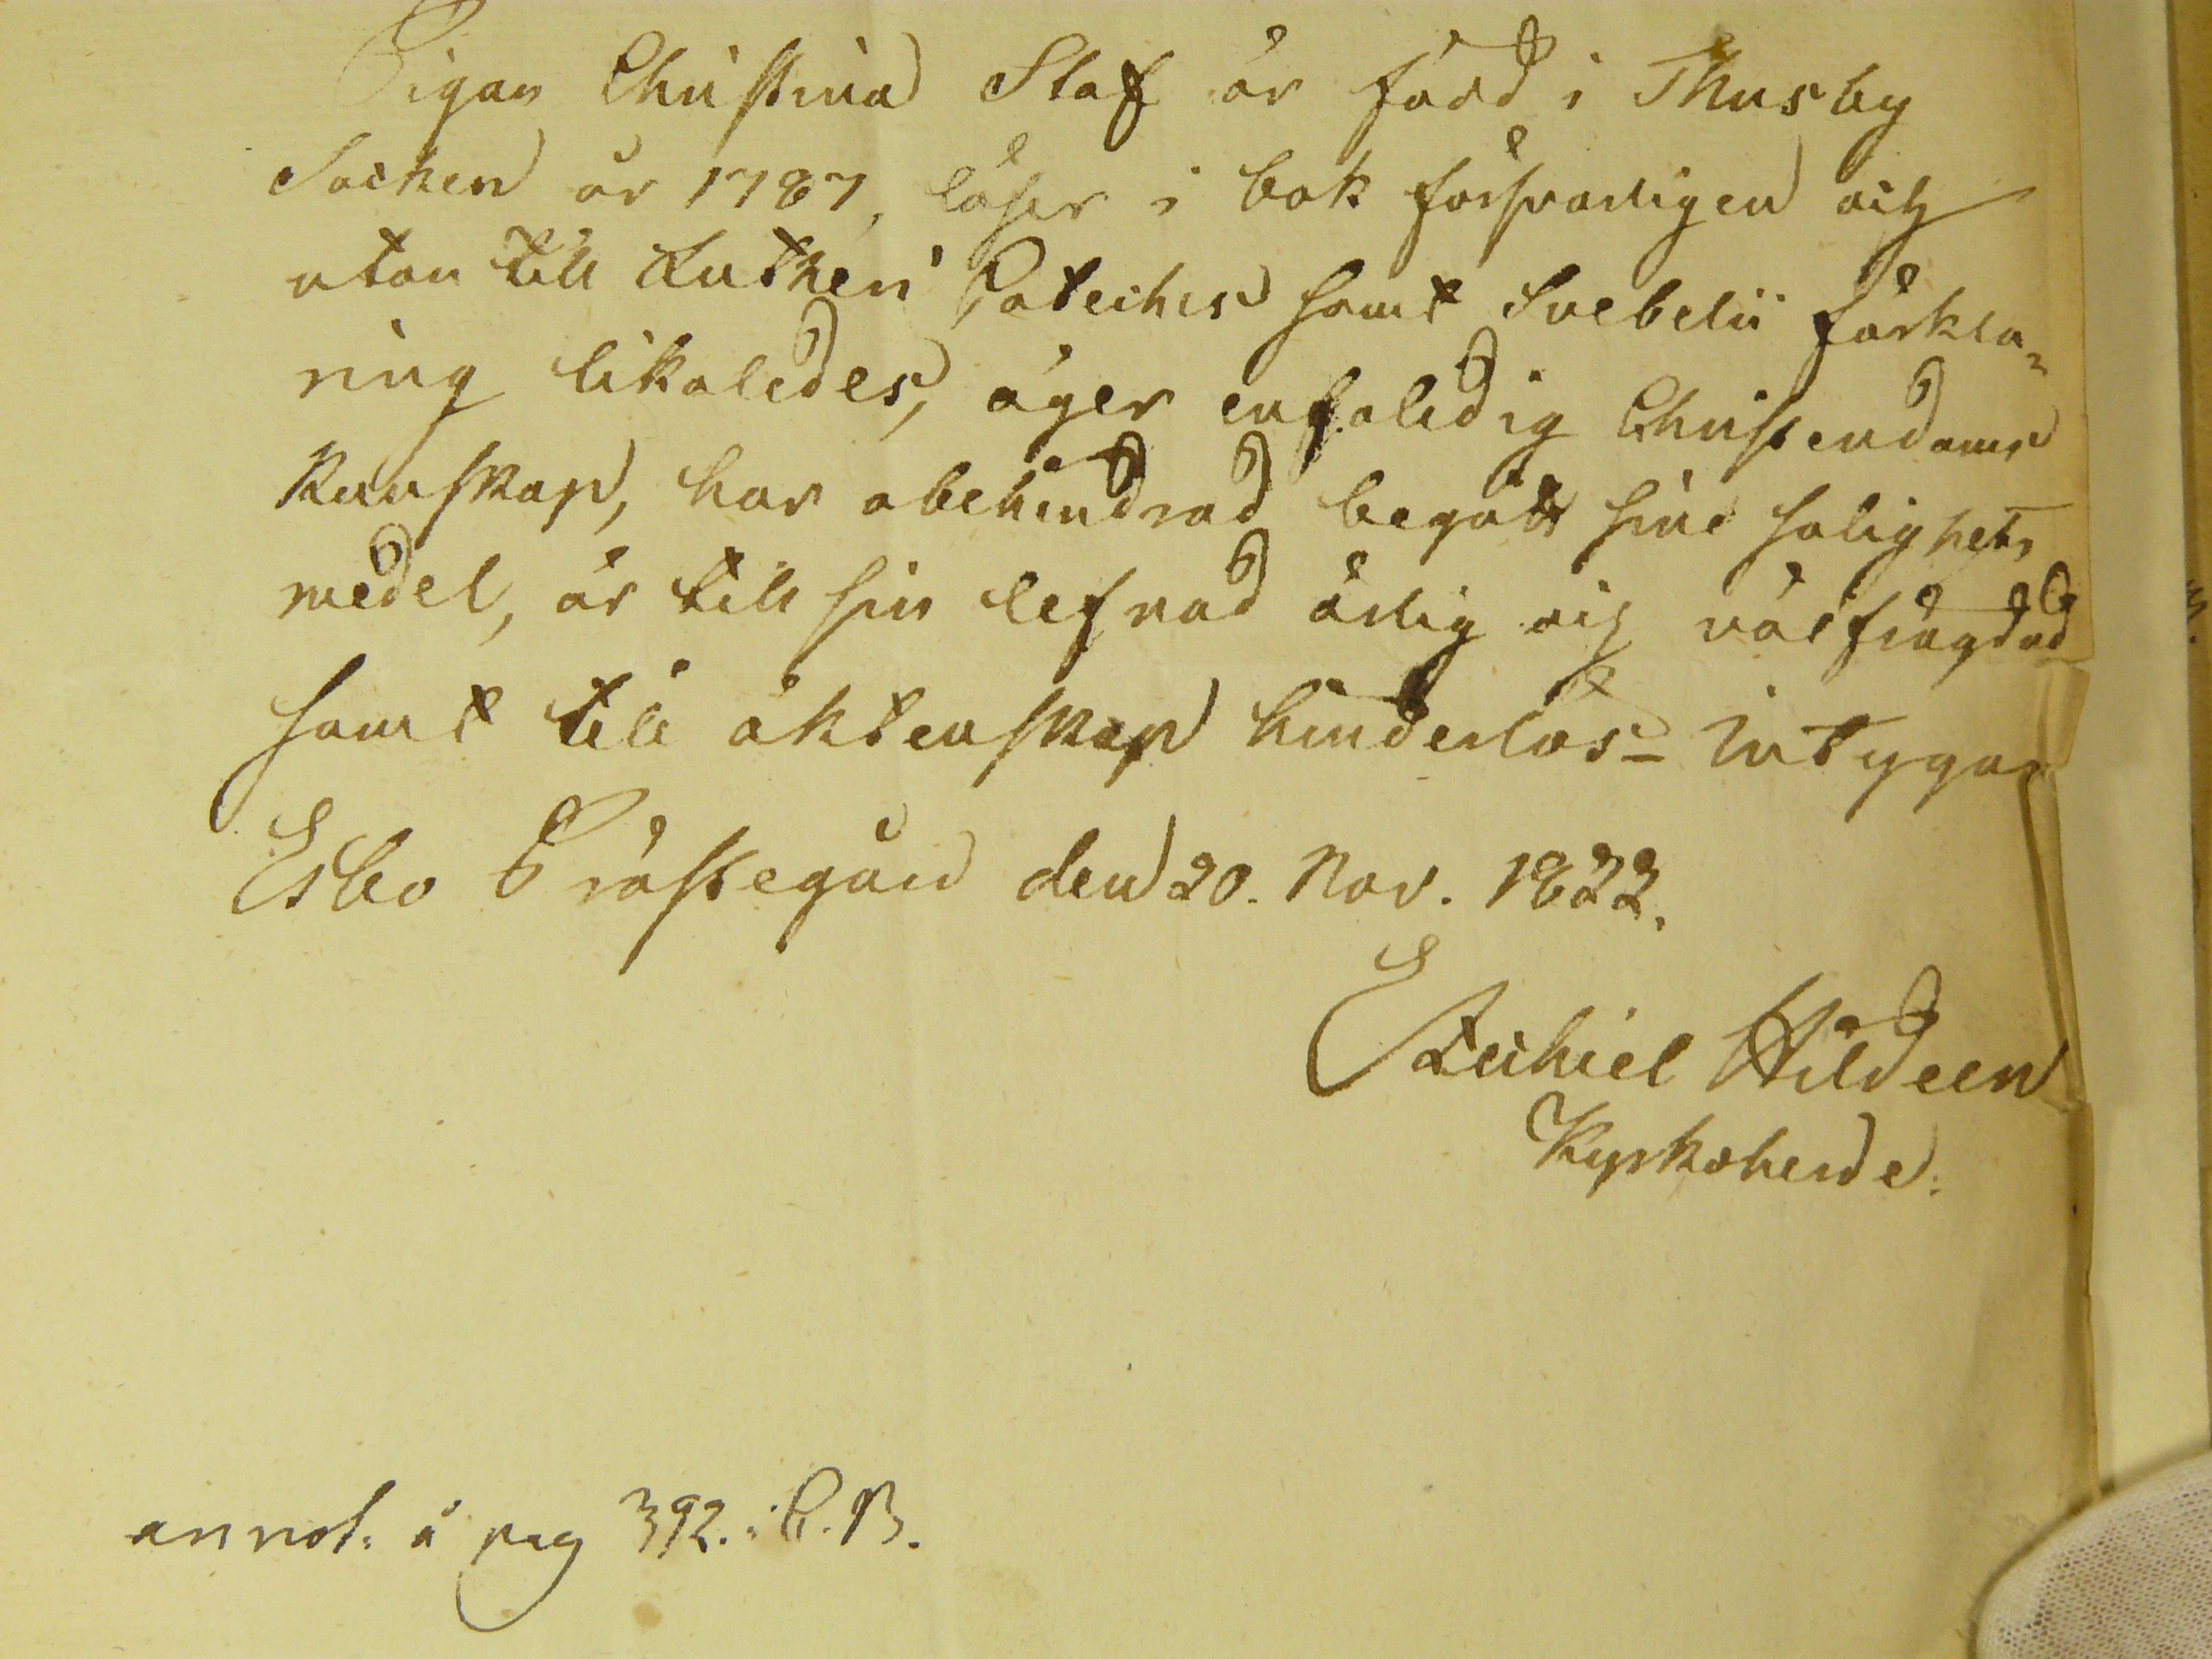 Pigan Christina Staf är föd i Thusby
Socken år 1787, läser i bok försvarligen och
utan till Lutheri Cateches samt Svebelii förkla=
ring likaledes, äger enfaldig Christendoms
Kunskap, har obehindrad begått sine salighets
medel, är till sin lefnad ärlig och välfrägdad
samt till äktenskap hinderlös - intygar
Esbo Prästegård den 20. Nov. 1822.
Ezechiel Hildeen
Kyrkoherde.
annot. å pag 392. i C.B.